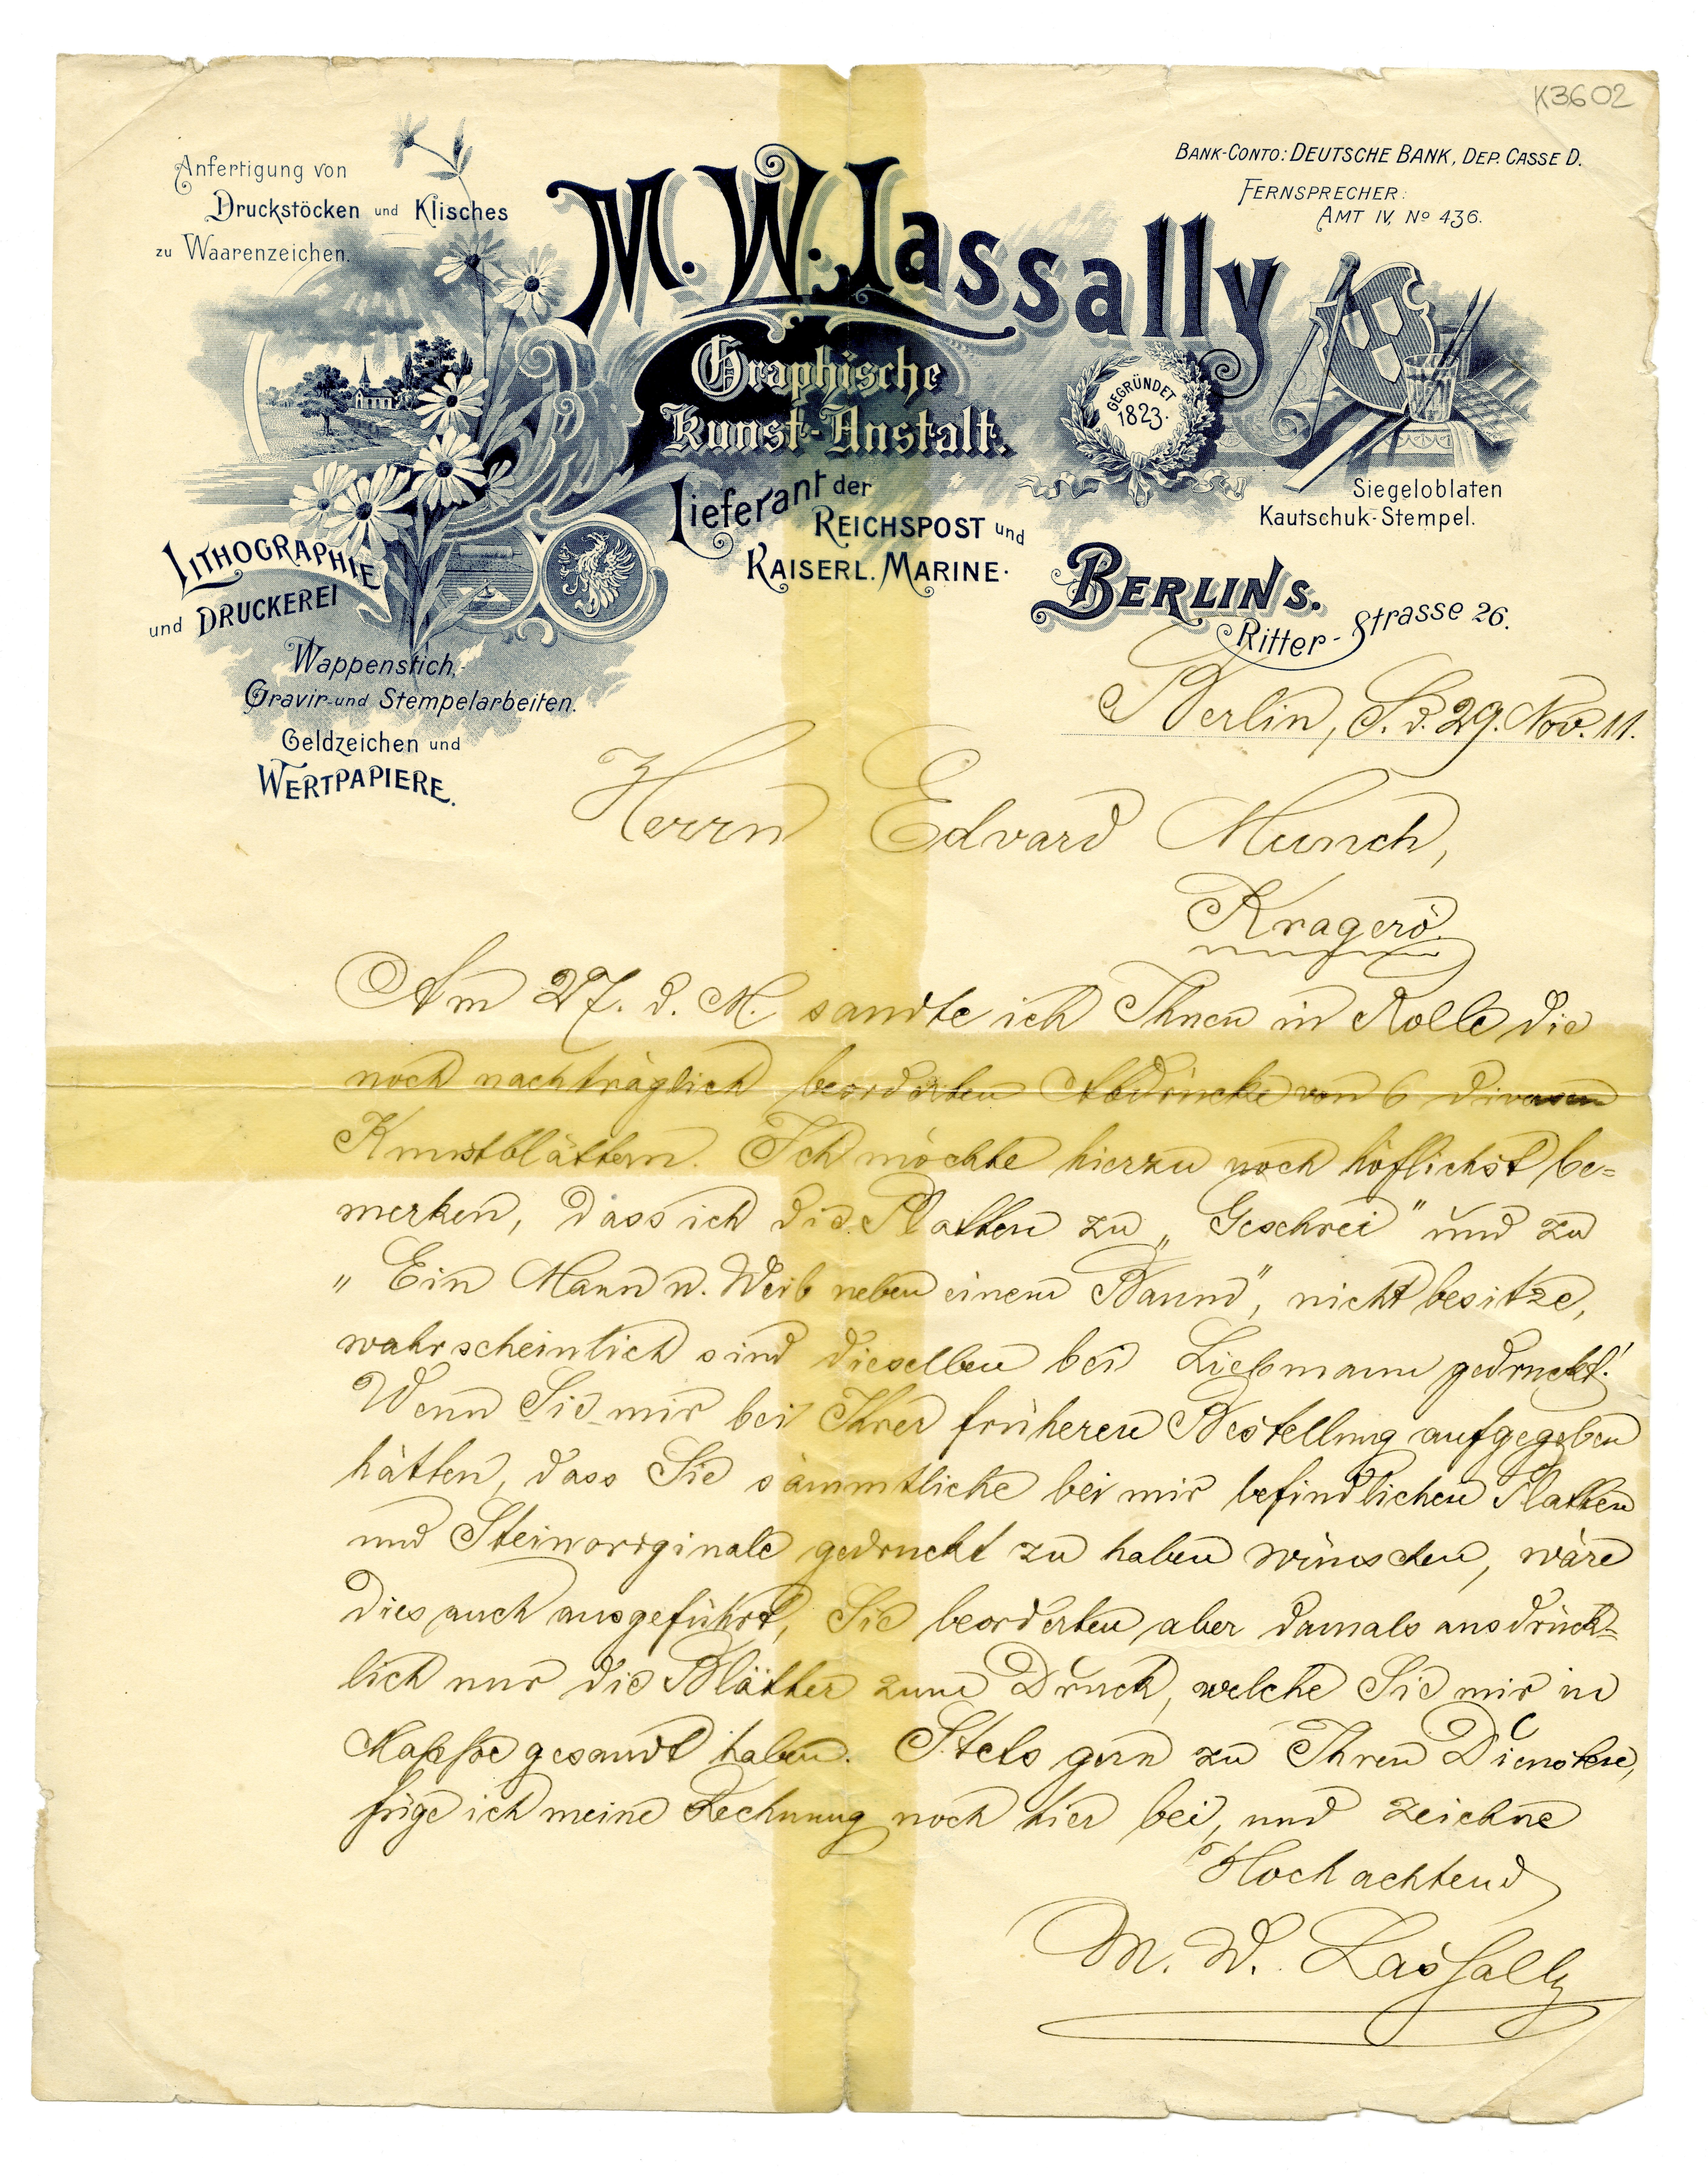 K3602
Anfertigung von
Druckstöcken und Klisches
zu Waarenzeichen.
BANK-CONTO: DEUTSCHE BANK, DEP. CASSE D.
FERNSPRECHER:
AMT IV, No 436.
M. W. Lassally
Graphische
Kunst-Anstalt.
GEGRÜNDET
1823.
Lieferant der
REICHSPOST und
KAISERL. MARINE.
Siegeloblaten
Kautschuk-Stempel.
LITHOGRAPHIE
und DRUCKEREI
Wappenstich,
Gravir- und Stempelarbeiten.
Geldzeichen und
WERTPAPIERE.
BERLIN S.
Ritter-Strasse 26.
Berlin, S. d. 29. Nov. 11.
Herrn Edvard Munch,
Kragerö.
Am 27. d. M. sandte ich Ihnen in Rolle die
noch nachträglich beorderten Abdrücke von 6 diversen
Kunstblättern. Ich möchte hierzu noch höflichst be=
merken, dass ich die Platten zu „Geschrei" und zu
„Ein Mann u. Weib neben einem Baum", nicht besitze,
wahrscheinlich sind dieselben bei Liebmann gedruckt!
Wenn Sie mir bei Ihrer früheren Bestellung aufgegeben
hätten, dass Sie sämmtliche bei mir befindlichen Platten
und Steinoriginale gedruckt zu haben wünschen, wäre
dies auch ausgeführt, Sie beorderten aber damals ausdrück=
lich nur die Blätter zum Druck, welche Sie mir in
Mappe gesandt haben. Stets gern zu Ihren Diensten,
füge ich meine Rechnung noch hier bei, und zeichne
Hochachtend
M. W. Lassally